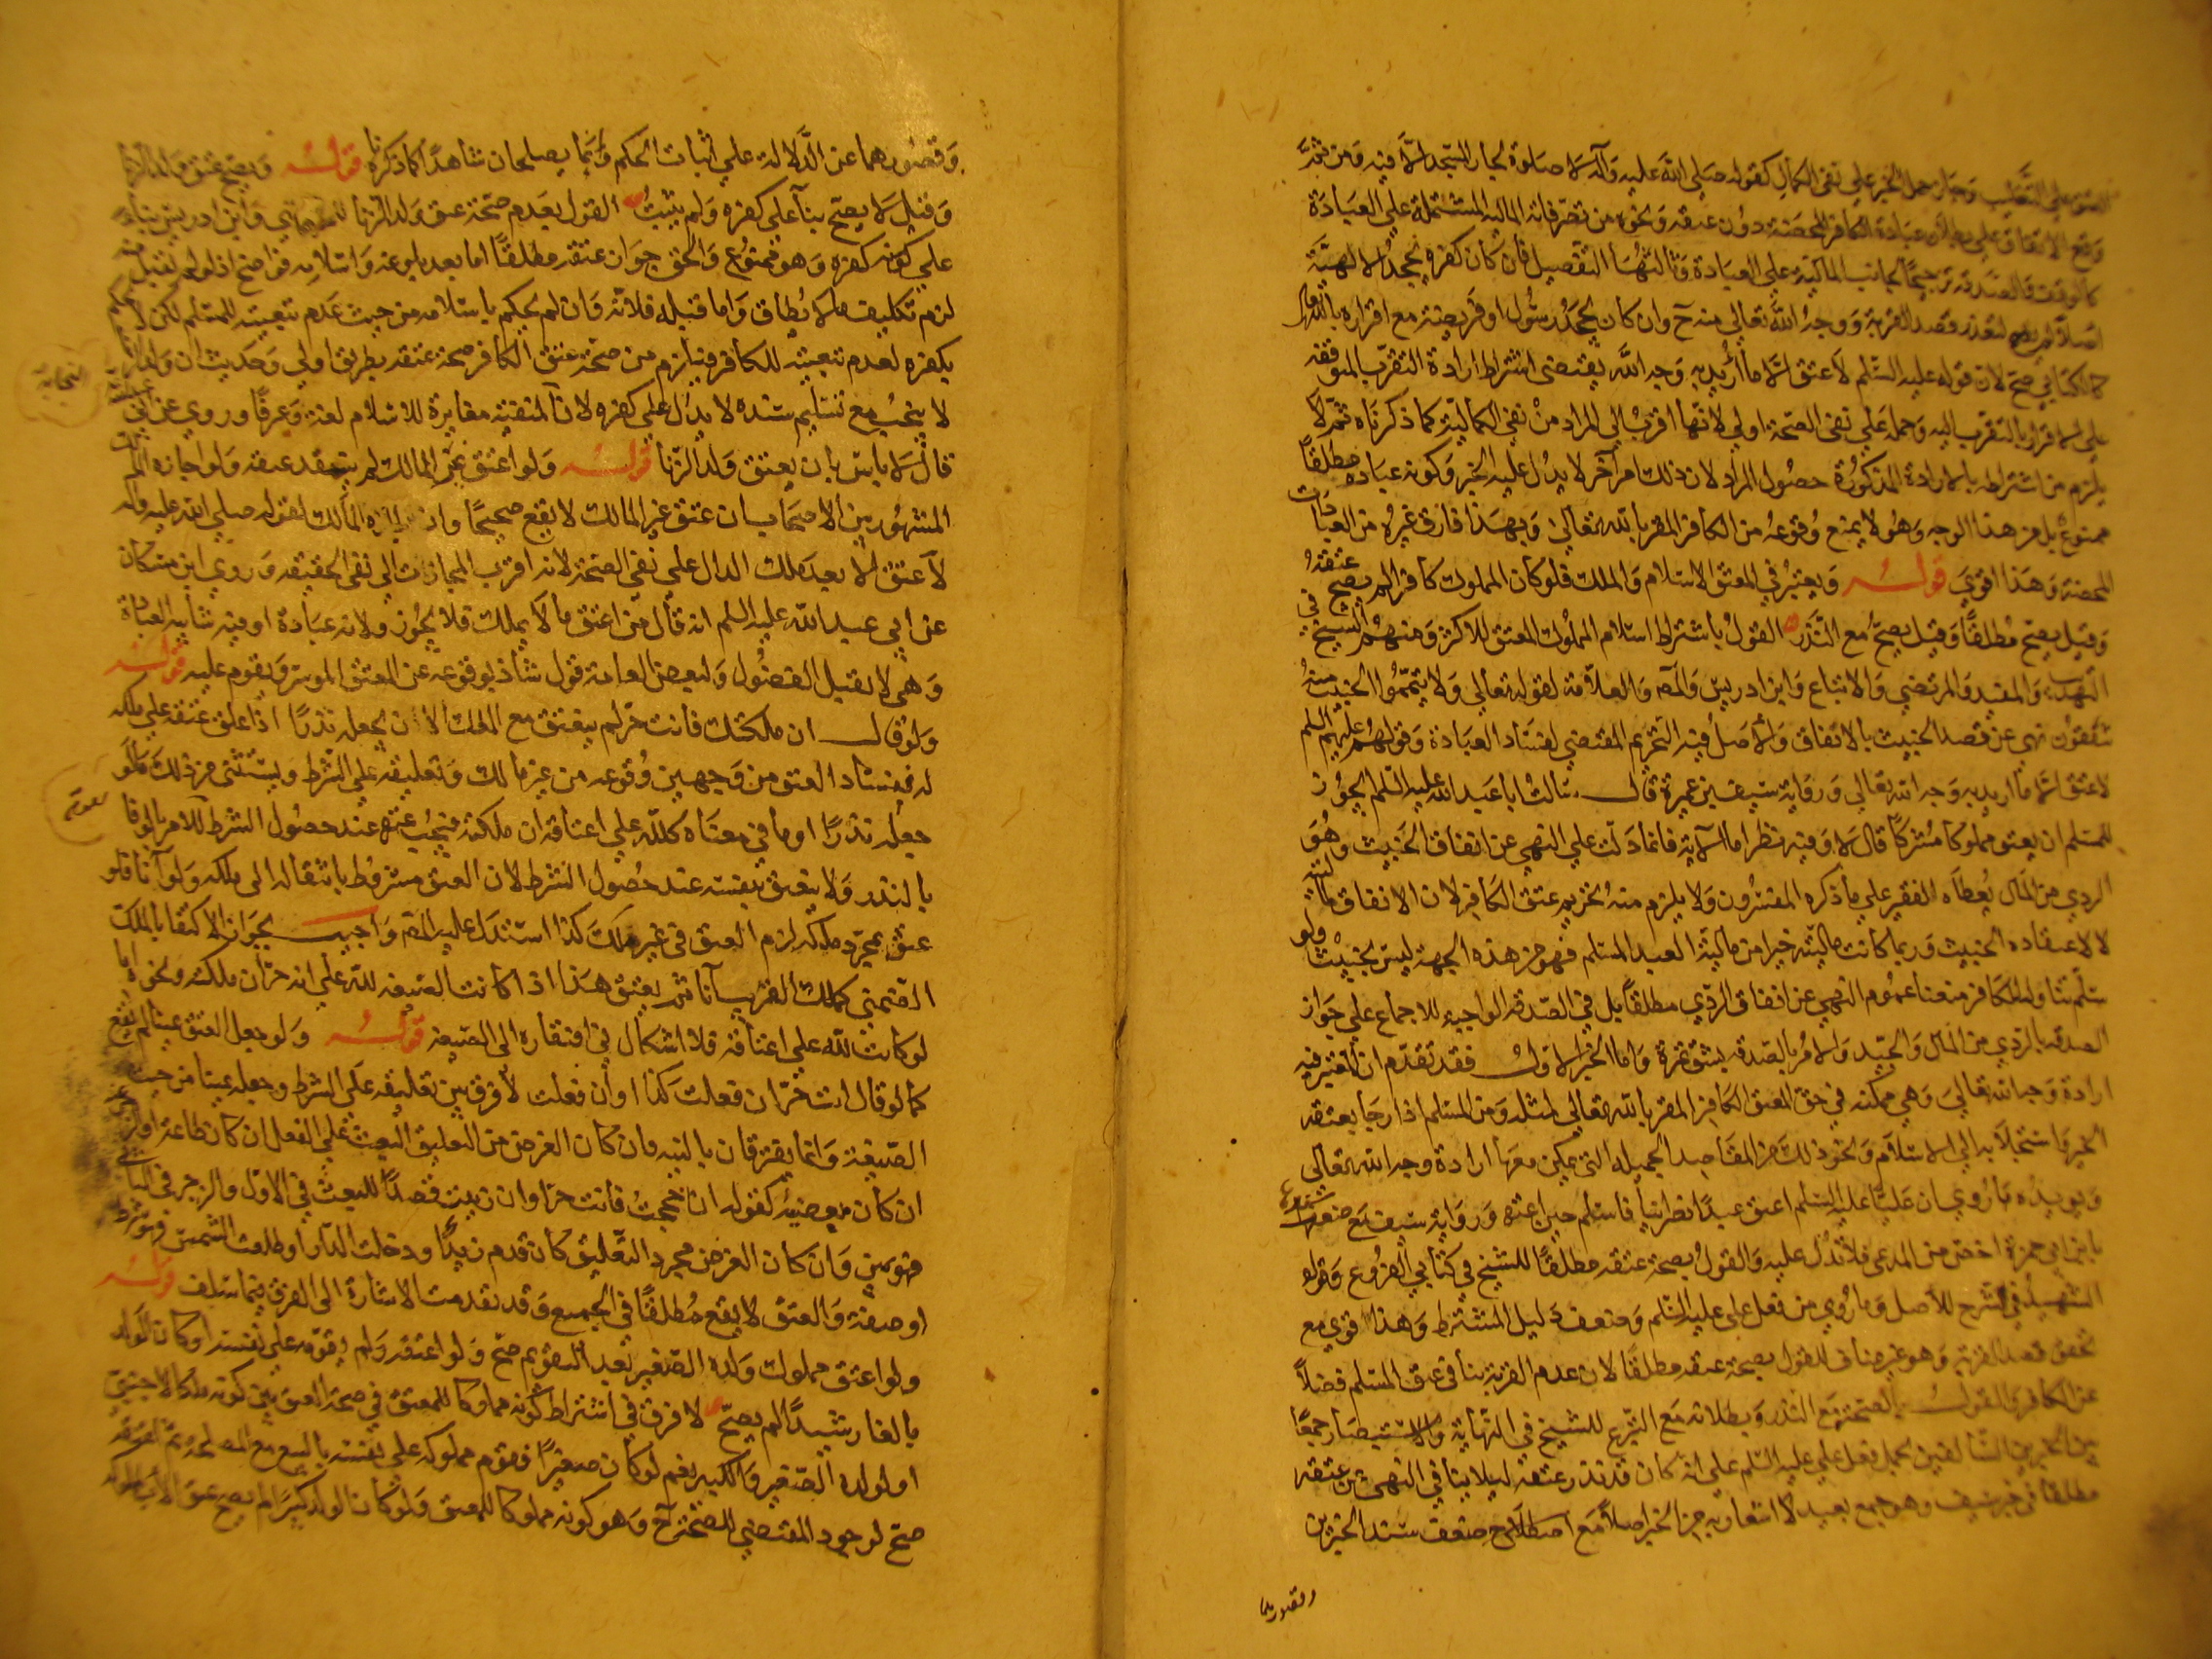 وقع الاتفاق على بطلان عبادة الكافر المحضة دون عتقه ونحوه من تصرفاته المالية المشتملة على العبادة
كالوقف والصدقة ترجيحا لجانب المالية على العبادة وثالثها التفصيل فان كان كفره بجحد الالهية
لتعذر قصد القربة ووجه الله تعالى منه ح وان كان بجحد رسول او فريضة مع اقراره بالله
كالكتابي صح لان قوله عليه السلم لا عتق الا ما اريد به وجه الله يقتضى اشتراط ارادة التقرب المتوقفه
على الاقرار بالمتقرب اليه وحمله على نفى الصحة اولى لانها اقرب الى المراد من نفى الكمالية كما ذكرناه ثم لا
يلزم من اشتراطه بالارادة المذكورة حصول المراد لان ذلك امر آخر لا يدل عليه الخبر وكونه عبادة مطلقا
ممنوع بل من هذا الوجه وهو لا يمنع وقوعه من الكافر المقر بالله تعالى وبهذا فارق غيره من العبادات
المحضة وهذا اقوى قوله ويعتبر في المعتق الاسلام والملك فلو كان المملوك كافرا لم يصح عتقه
وقيل يصح مطلقا وقيل يصح مع النذر القول باشتراط اسلام المملوك المعتق للاكثر ومنهم الشيخ في
التهذيب والمفيد والمرتضى والاتباع وابن ادريس والمصه والعلامة لقوله تعالى ولا تيمموا الخبيث منه
تنفقون نهى عن قصد الخبيث بالانفاق والاصل فيه التحريم المقتضى لفساد العبادة وقولهم عليهم السلم
لا عتق الا ما اريد به وجه الله تعالى ورواية سيف بن عميرة قال سالت ابا عبد الله عليه السلم ايجوز
للمسلم ان يعتق مملوكا مشركا قال لا وفيه نظر اما الاية فانما دلت على النهي عن انفاق الخبيث وهو
الردي من المال يعطاه الفقير على ما ذكره المفسرون ولا يلزم منه تحريم عتق الكافر لان الانفاق لماليته
لا لاعتقاده الخبيث وربما كانت ماليته خيرا من مالية العبد المسلم فهو من هذه الجهة ليس بخبيث ولو
سلم تناوله للكافر منعنا عموم النهي عن انفاق الردي مطلقا بل في الصدقة الواجبه للاجماع على جواز
الصدقه بالردي من المال والجيد والامر بالصدقه بشق تمرة واما الخبر الاول فقد تقدم ان المعتبر فيه
ارادة وجه الله تعالى وهي ممكنه في حق المعتق الكافر المقر بالله تعالى لمثله ومن المسلم اذا رجا بعتقه
الخير واستجلابه الى الاسلام ونحو ذلك من المقاصد الجميله التي يمكن معها ارادة وجه الله تعالى
ويويده ما روي ان عليا عليه السلم اعتق عبدا نصرانيا فاسلم حين اعتقه ورواية سيف مع ضعفها
بابن ابي حمزة اخص من المدعى فلا تدل عليه والقول بصحة عتقه مطلقا للشيخ في كتابي الفروع وقواه
الشهيد في الشرح للاصل وما روي من فعل على عليه السلم وضعف دليل المشترط وهذا قوي مع
تحقق قصد القربة وهو غير مناف للقول بصحة عتقه مطلقا لان عدم القربة ينافي عتق المسلم فضلا
عن الكافر والقول بالصحة مع النذر وبطلانه مع التبرع للشيخ في النهاية والاستبصار جمعا
بين الخبرين السالفين بحمل فعل علي عليه السلم على انه كان قد نذر عتقه ليلا ينافي النهي عن عتقه
مطلقا في خبر سيف وهو جمع بعيد لا اشعار به من الخبر اصلا مع اصطلاح ضعف سند الخبرين
وقصورهما
وقصورهما عن الدلالة على اثبات الحكم وانما يصلحان شاهدا كما ذكرنا قوله ويصح عتق ولد الزنا
وقيل لا يصح بنآ على كفره ولم يثبت القول بعدم صحة عتق ولد الزنا للمرتضى وابن ادريس بناء
على كونه كفره وهو ممنوع والحق جواز عتقه مطلقا اما بعد بلوغه واسلامه فواضح اذ لو لم يقبل منه
لزم تكليف ما لا يطاق واما قبله فلانه وان لم يحكم باسلامه من حيث عدم تبعيته للمسلم لكن لا يحكم
بكفره لعدم تبعيته للكافر فيلزم من صحة عتق الكافر صحة عتقه بطريق اولى وحديث ان ولد الزنا
لا ينجب مع تسليم سنده لا يدل على كفره لان المنفيه مغايرة للاسلام لغة وعرفا وروي عن ابي عبد الله
قال لا باس بان يعتق ولد الزنا قوله ولو اعتق غير المالك لم ينفذ عتقه ولو اجازه المالك
المشهور بين الاصحاب ان عتق غير المالك لا يقع صحيحا وان اجازه المالك لقوله صلى الله عليه وآله
لا عتق الا بعد ملك الدال على نفى الصحة لانه اقرب المجازات الى نفى الحقيقه وروي ابن مسكان
عن ابي عبد الله عليه السلم انه قال من اعتق ما لا يملك فلا يجوز ولانه عبادة او فيه شايبه العبادة
وهي لا يقبل الفضول ولبعض العامة قول شاذ بوقوعه عن المعتق الموسر ويقوم عليه قوله
ولو قال ان ملكتك فانت حر لم ينعتق مع الملك الا ان يجعله نذرا اذا علق عتقه على ملكه
له ففساد العتق من وجهين وقوعه من غير مالك وتعليقه على الشرط ويستثنى من ذلك ما لو
جعله نذرا او ما في معناه كلله علي اعتاقه ان ملكته فيجب عتقه عند حصول الشرط للامر بالوفا
بالنذر ولا ينعتق بنفسه عند حصول الشرط لان العتق مشروط بانتقاله الى ملكه ولو آنا فلو
عتق بمجرد ملكه لزم العتق في غير ملك كذا استدل عليه المصه واجيب بجواز الاكتفا بالملك
الضمني كملك القريب آنا ثم يعتق هذا اذا كانت الصيغه لله علي انه حر ان ملكته ونحوه اما
لو كانت لله علي اعتاقه فلا اشكال في افتقاره الى الصيغه قوله ولو جعل العتق يمينا لم يقع
كما لو قال انت حر ان فعلت كذا او ان فعلت لا فرق بين تعليقه على الشرط وجعله يمينا من حيث
الصيغة وانما يفترقان بالنيه فان كان الغرض من التعليق البعث على الفعل ان كان طاعة او الزجر عنه
ان كان معصيه كقوله ان حججت فانت حر او ان زنيت قصدا للبعث في الاول والزجر في الثاني
فهو يمين وان كان الغرض مجرد التعليق كان قدم زيد او دخلت الدار او طلعت الشمس فهو شرط
او صفة والعتق لا يقع مطلقا في الجميع وقد تقدمت الاشارة الى الفرق فيما سلف قوله
ولو اعتق مملوك ولده الصغير بعد التقويم صح ولو اعتقه ولم يقومه على نفسه او كان الولد
بالغا رشيدا لم يصح لا فرق في اشتراط كونه مملوكا للمعتق في صحة العتق بين كونه ملكا لاجنبي
او لولده الصغير والكبير نعم لو كان صغيرا فقوم مملوكه على نفسه بالبيع مع المصلحة ثم اعتقه
صح لوجود المقتضى للصحة ح وهو كونه مملوكا للمعتق ولو كان الولد كبيرا لم يصح عتق الاب لمملوكه